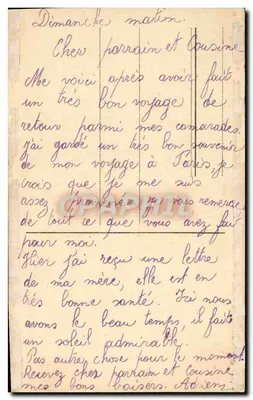 Dimanche matin.
Cher parrain et Cousine
Me voici après avoir fait
un très bon voyage de
retour parmi mes camarades.
j'ai gardé un très bon souvenir
de mon voyage à Paris, je
crois que je me suis
assez je vous remercie
de tout ce que vous avez fait
pour moi.
Hier j'ai reçu une lettre
de ma mère, elle est en
très bonne santé. Ici nous
avons le beau temps, il fait
un soleil admirable.
Pas autre chose pour le moment.
Recevez cher parrain et cousine
mes bons baisers. Adrien
CPAPHIL